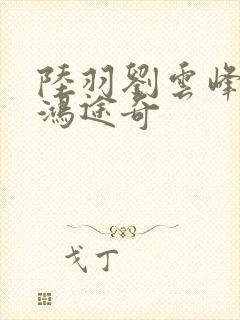 陸羽劉雲峰
鴻途奇
戈丁